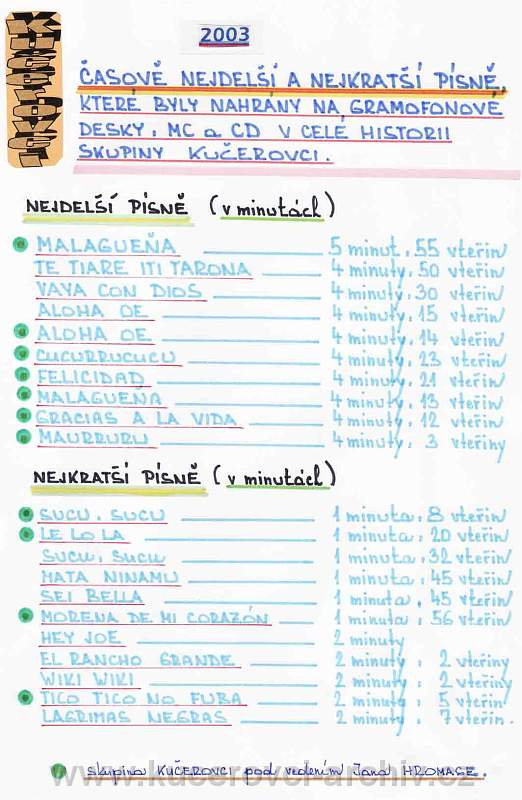 2003
KUČEROVCI
ČASOVĚ NEJDELŠÍ A NEJKRATŠÍ PÍSNĚ,
KTERÉ BYLY NAHRÁNY NA GRAMOFONOVÉ
DESKY, MC a CD V CELÉ HISTORII
SKUPINY KUČEROVCI.
NEJDELŠÍ PÍSNĚ (v minutách)
MALAGUEÑA 5 minut, 55 vteřin
TE TIARE ITI TARONA 4 minuty, 50 vteřin
VAYA CON DIOS 4 minuty, 30 vteřin
ALOHA OE 4 minuty, 15 vteřin
ALOHA OE 4 minuty, 14 vteřin
CUCURRUCUCU 4 minuty, 23 vteřin
FELICIDAD 4 minuty, 21 vteřin
MALAGUEÑA 4 minuty, 13 vteřin
GRACIAS A LA VIDA 4 minuty, 12 vteřin
MAURRURU 4 minuty, 3 vteřiny
NEJKRATŠÍ PÍSNĚ (v minutách)
SUCU, SUCU 1 minuta, 8 vteřin
LE LO LA 1 minuta, 20 vteřin
SUCU, SUCU 1 minuta, 32 vteřin
MATA NINAMU 1 minuta, 45 vteřin
SEI BELLA 1 minuta, 45 vteřin
MORENA DE MI CORAZÓN 1 minuta, 56 vteřin
HEY JOE 2 minuty
EL RANCHO GRANDE 2 minuty, 2 vteřiny
WIKI WIKI 2 minuty, 2 vteřiny
TICO TICO NO FUBA 2 minuty, 5 vteřin
LAGRIMAS NEGRAS 2 minuty, 7 vteřin.
skupina KUČEROVCI pod vedením Jana HROMASE.
www.kucerovci-archiv.cz